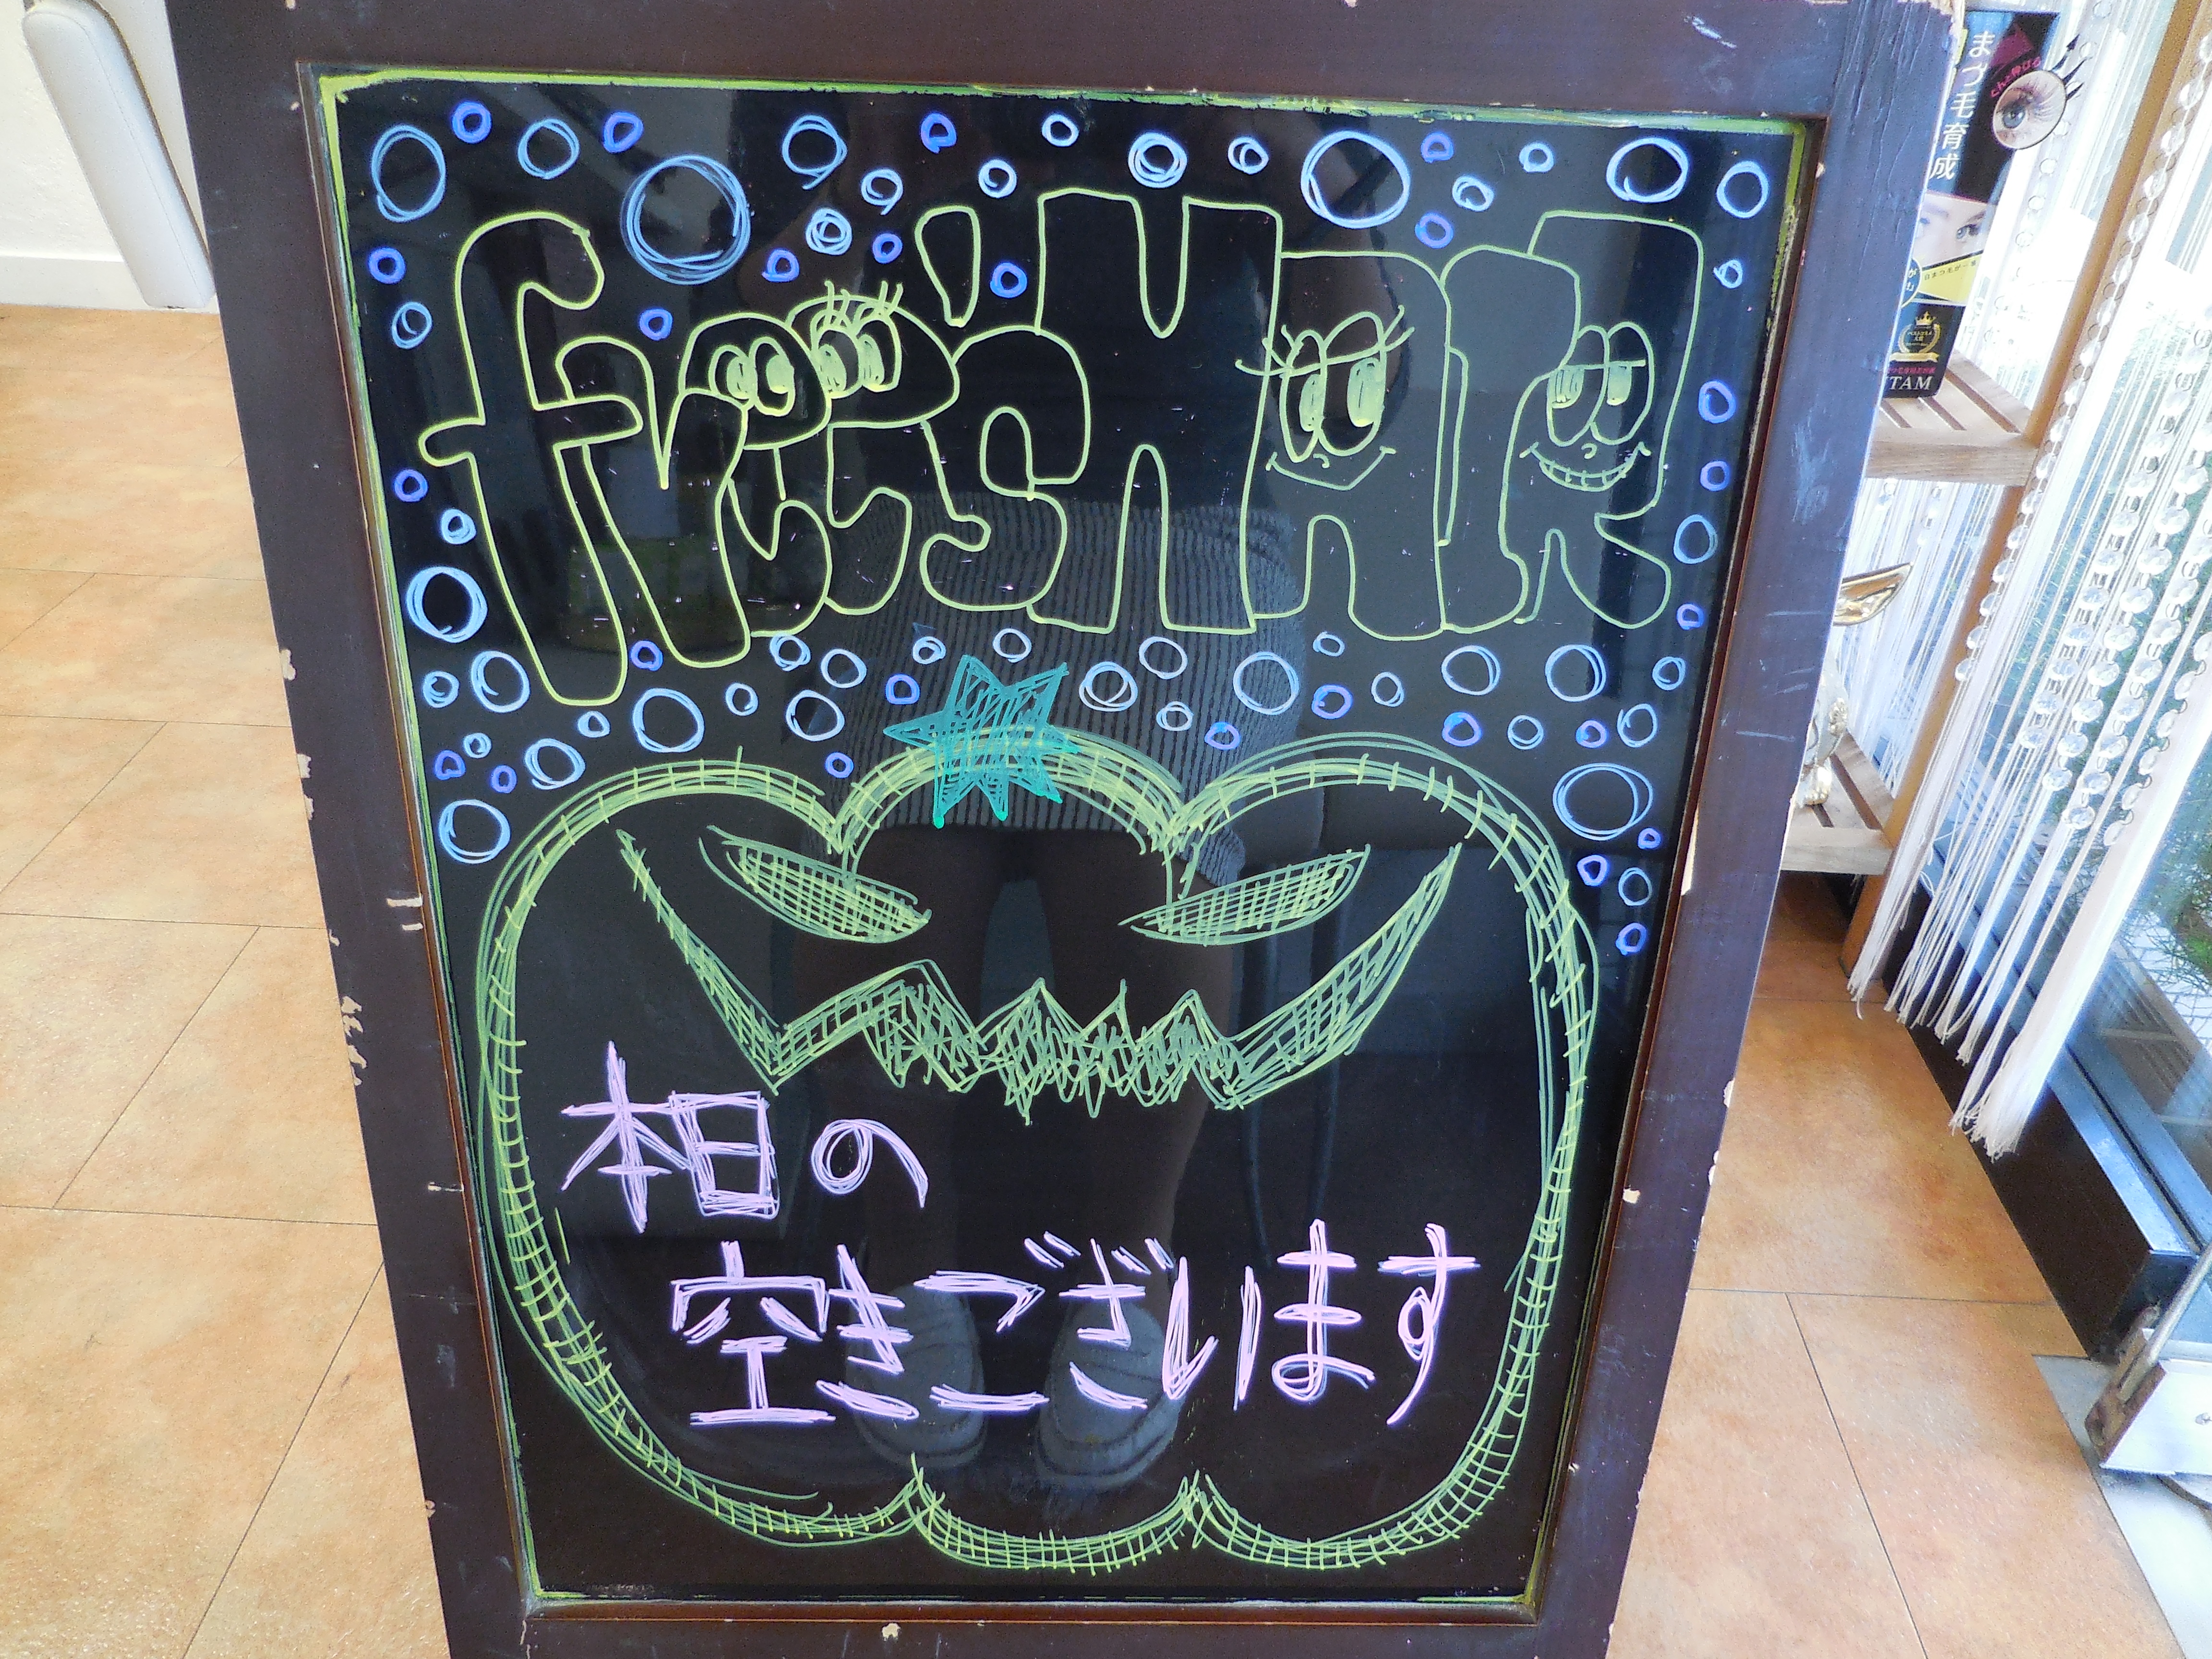 free'sHAIR
本日の
空きございます
まつ毛育成
ぐんと伸びる
TAM